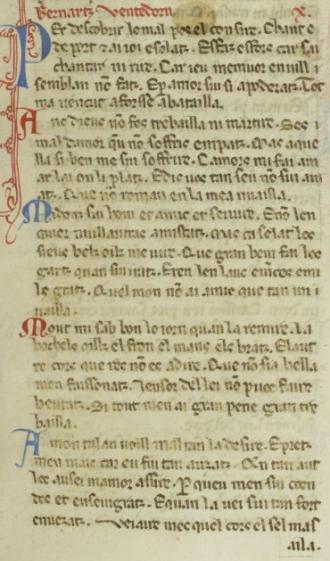 Bernartz Ventedorn. X.
Per descobrir lo mal pes el consire. Chant e
deport e ai ioi e solatz. Esfatz esforc car sai
chantar ni rire. Car ieu me muor e nuill
semblan nō fatz. Ep amor sui si apoderatz. Tot
ma vencut a forsse abatailla.
Anc dieus nō fes trebailla ni martire. Ses
mal damor qu nō soffris em patz. Mas daque
lla si ben me sui soffrire. Camors mi fai am
ar lai on li platz. E dic vos tan seu nō sui am
atz. Que nō reman en la mea nuailla.
Midonz sui hom et amic et servire. E nol en
quier nuillautras amistatz. Mas ca selat los
sieus bels oilz me vire. Que gran bem fai les
gartz quan sui iratz. E ren len laus e mces em
le gratz. Quel mon nō ai amic que tan mi
uailla.
Mout mi sab bon lo iorn quan la remire. La
bochels oillz el fron el mans els bratz. El aut
re cors que res nō es adire. Que nō sia bella
men faissonatz. Iensor de lei nō puoc faire
beutatz. Si tout men ai gran pene gran tre
bailla.
A mon talan voill mal tan la desire. E prez
men mais car eu fui tan auzatz. Qn tan aut
loc ausei mamor assire. P queu men sui coin
des et enseingnatz. E quan la vei sui tan fort
enuezatz. Veiaire mes quel cors el cel mas
ailla.